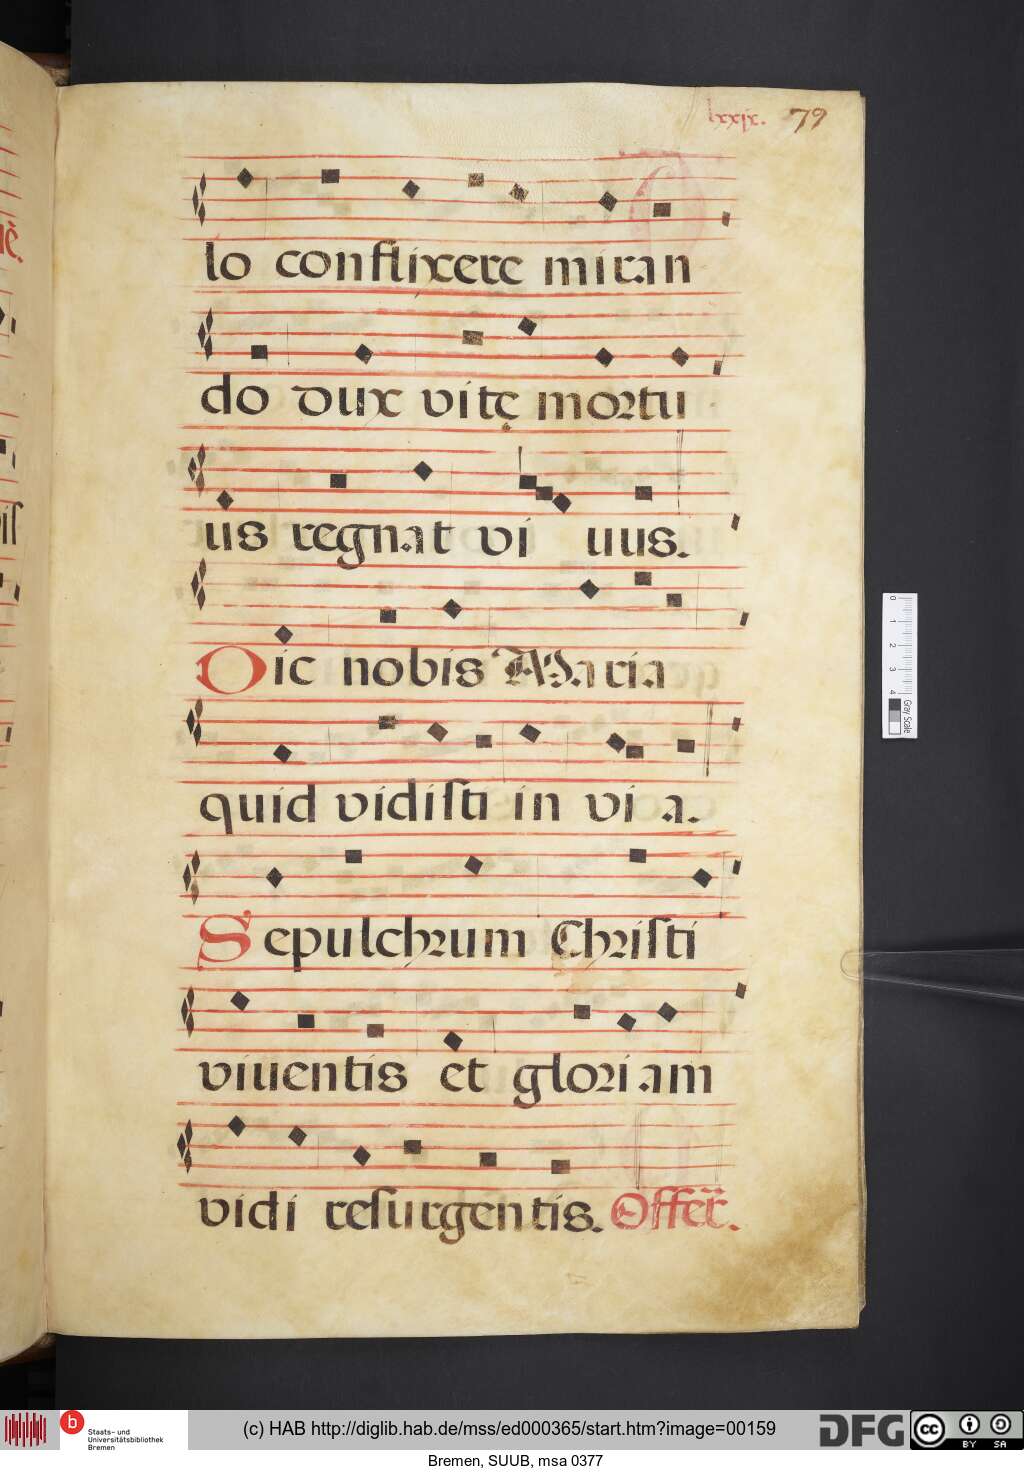 lxxix. 79
lo conflixere miran
do dux vitę mortu
us regnat vi uus.
Dic nobis Maria
quid vidisti in vi a.
Sepulchrum Christi
viuentis et gloriam
vidi resurgentis. Offer̄.
0 1 2 3 4
Gray Scale
b
Staats- und
Universitätsbibliothek
Bremen
(c) HAB http://diglib.hab.de/mss/ed000365/start.htm?image=00159
DFG
cc BY SA
Bremen, SUUB, msa 0377